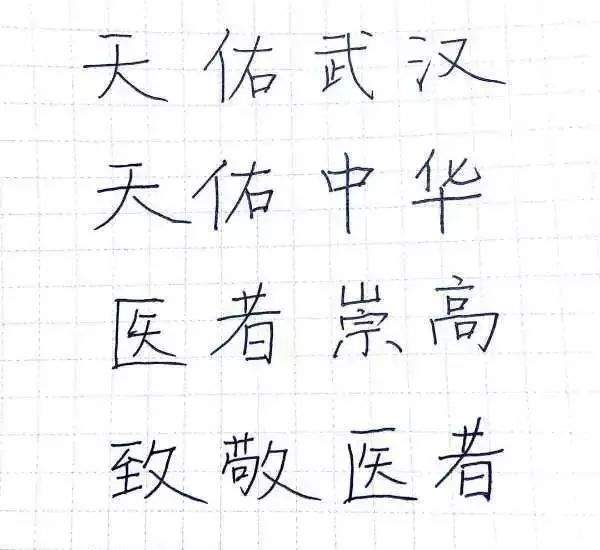 天佑武汉
天佑中华
医者崇高
致敬医者